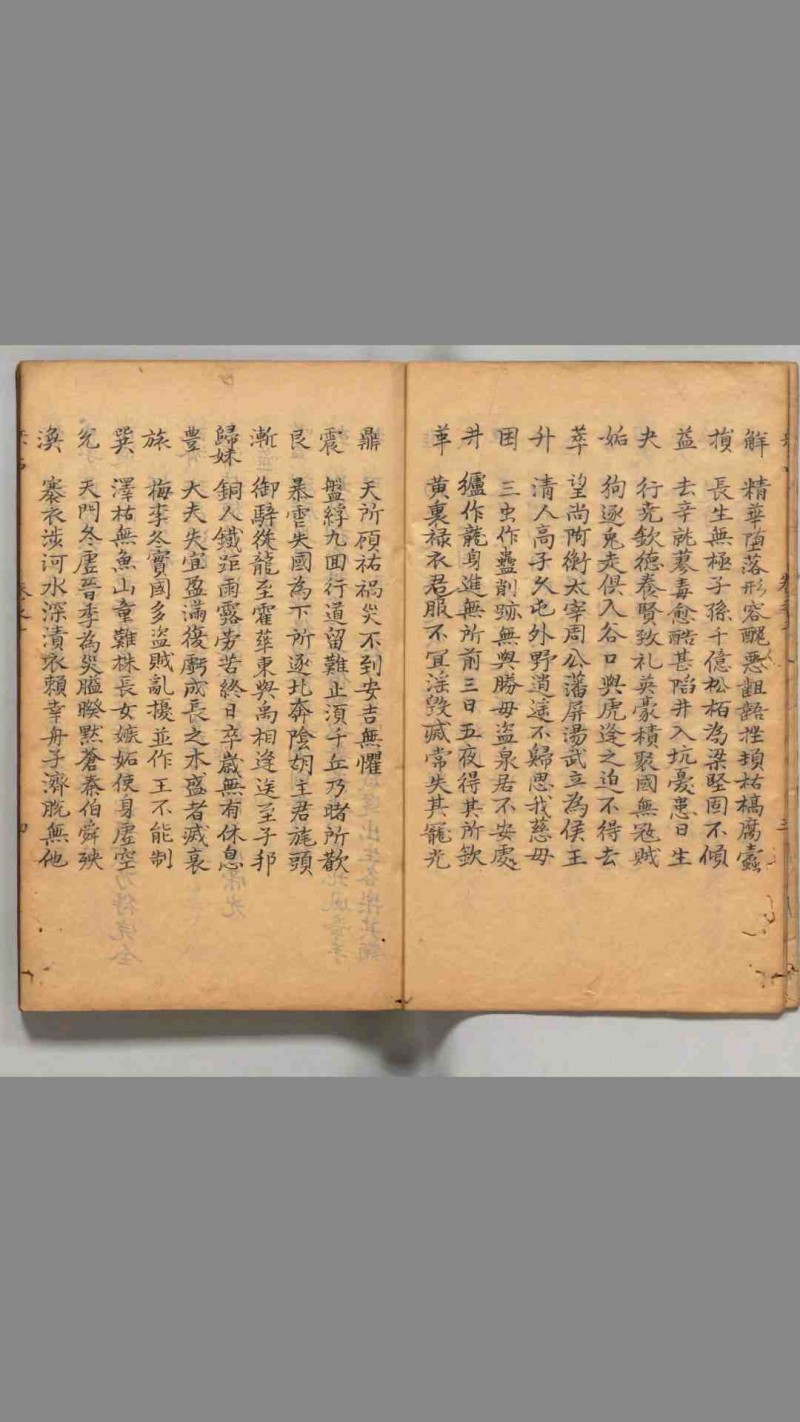 解 精華堕落形容醜惡齟齬挫頓枯槁腐蠹
損 長生無極子孫千億松栢為梁堅固不傾
益 去辛就蓼毒愈酷甚陷井入坑憂患日生
夬 行尭欽德養賢致礼英豪積聚國無冦賊
姤 狗逐兎走俱入谷口與虎逢之迫不得去
萃 望尚阿衡太宰周公藩屏湯武立為侯王
升 清人高子久屯外野逍遥不歸思我慈母
困 三虫作蠱削跡無與勝母盗泉君不安處
井 䍧作龍身進無所前三日五夜得其所欽
革 黄裏祿衣君服不宜淫毁䘕常失其寵光
鼎 天所頋祐禍灾不到安吉無懼
震 盤紆九回行道留難止須千丘乃睹所歡
艮 暴雪失國為下所逐北奔陰胡主君旄頭
漸 御騂從龍至霍華東與禹相逢送至子邦
歸妹 銅人鐵距雨露勞苦終日卒歲無有休息
豊 大夫失宜盈滿復虧成長之木盛者減衰
旅 梅李冬實國多盗賊亂擾並作王不能制
巽 澤枯無魚山童難株長女嫉妬使身虚空
兊 天門冬虚晉季為災膃暌黙蒼秦伯舜殃
渙 寨衣涉河水深漬衣頼幸舟子濟脱無他